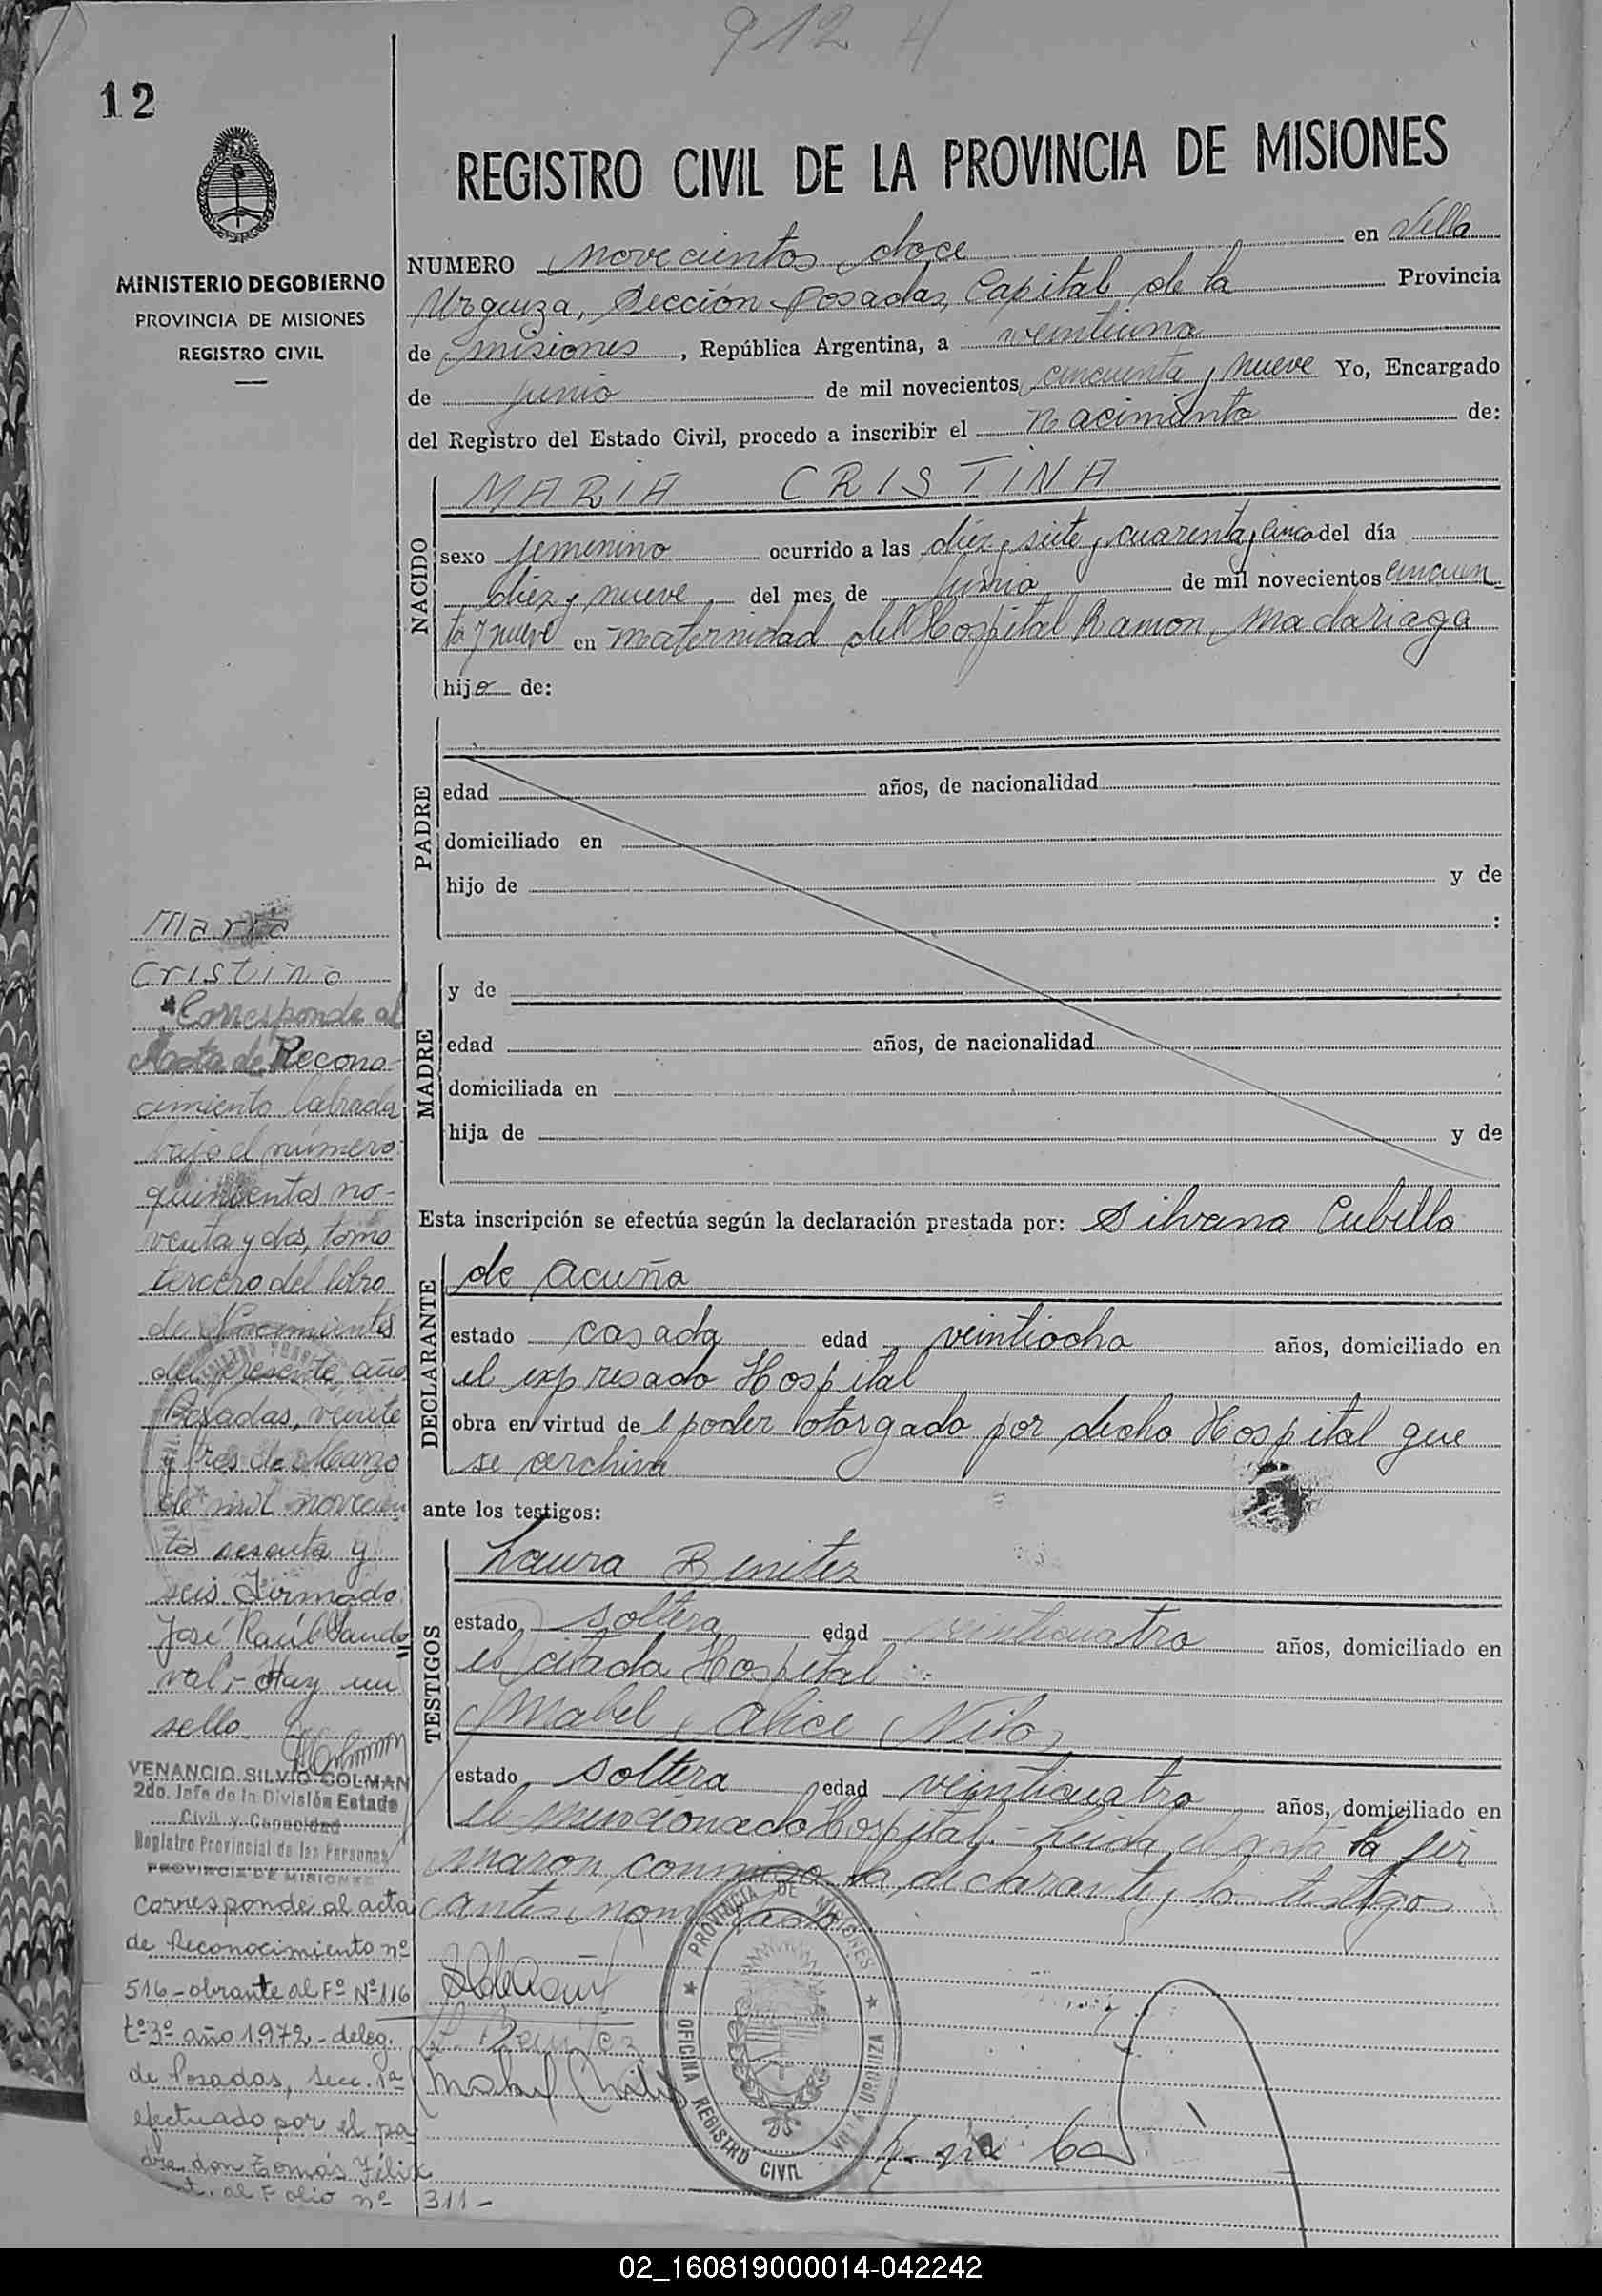 912
12
REGISTRO CIVIL DE LA PROVINCIA DE MISIONES
MINISTERIO DE GOBIERNO
PROVINCIA DE MISIONES
REGISTRO CIVIL
NUMERO novecientos doce en Villa
Urquiza, Sección Posadas, Capital de la Provincia
de Misiones, República Argentina, a veintiuno
de junio de mil novecientos cincuenta y nueve Yo, Encargado
del Registro del Estado Civil, procedo a inscribir el nacimiento de:
NACIDO
MARIA CRISTINA
sexo femenino ocurrido a las diez y siete y cuarenta y cinco del día
diez y nueve del mes de junio de mil novecientos cincuen
ta y nueve en maternidad del Hospital Ramon Madariaga
hijo de:
PADRE
edad años, de nacionalidad
domiciliado en
hijo de y de
:
MADRE
y de
edad años, de nacionalidad
domiciliada en
hija de y de
Esta inscripción se efectúa según la declaración prestada por: Silvana Cubilla
DECLARANTE
de Acuña
estado casada edad veintiocho años, domiciliado en
el expresado Hospital
obra en virtud de poder otorgado por dicho Hospital que
se archiva
ante los testigos:
TESTIGOS
Laura Benitez
estado soltera edad veinticuatro años, domiciliado en
el citado Hospital
Mabel Alice
estado soltera edad veinticuatro años, domiciliado en
el mencionado Hospital.- Leida el acta la fir
maron conmigo la declarante y los testigos
antes nombrados
L. Benitez
PROVINCIA DE MISIONES
OFICINA REGISTRO CIVIL
VILLA URQUIZA
Maria
Cristina
"Corresponde al
Acta de Recono-
cimiento labrada
bajo el número
quinientos no-
venta y dos, tomo
tercero del libro
de Nacimientos
del presente año
Posadas, veinte
y tres de Marzo
de mil novecien
tos sesenta y
seis. Firmado:
José Raúl Sando
val.- Hay un
sello.
VENANCIO SILVIO COLMAN
2do. Jefe de la División Estado
Civil y Capacidad
Registro Provincial de las Personas
PROVINCIA DE MISIONES
Corresponde al acta
de Reconocimiento nº
516 - obrante al Fº Nº 116
tº 3º año 1972 - deleg.
de Posadas, Secc. 1ª
efectuado por el pa
dre don Tomás Félix
al Folio nº 311-
02_160819000014-042242